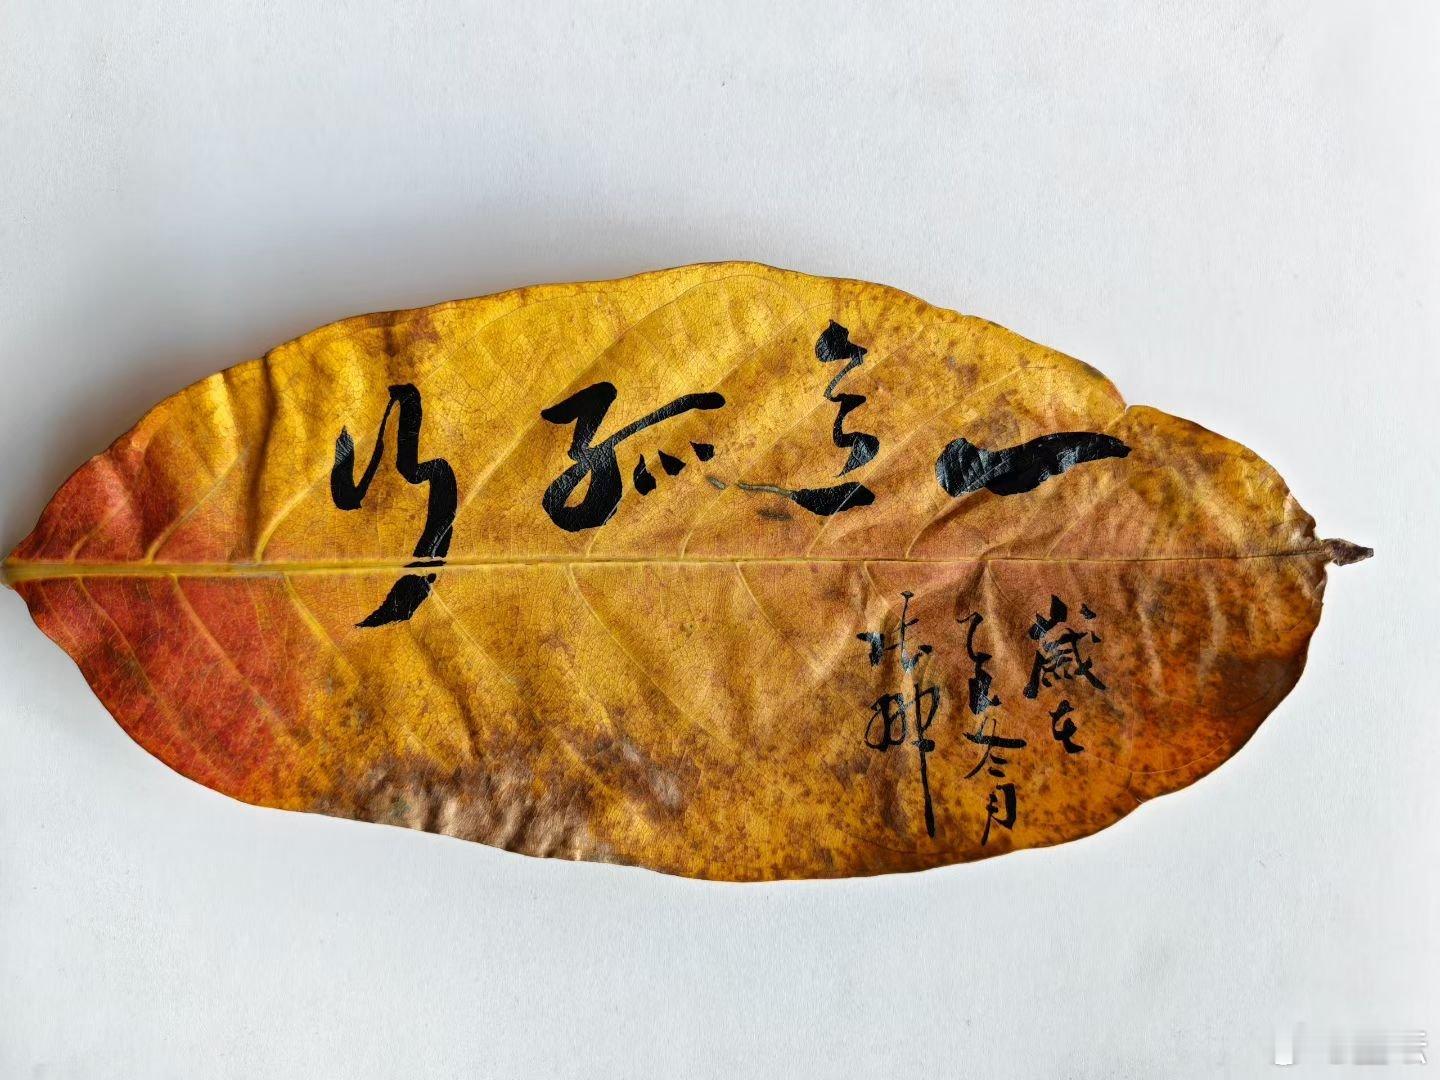 一意孤行
歲在
乙巳冬月